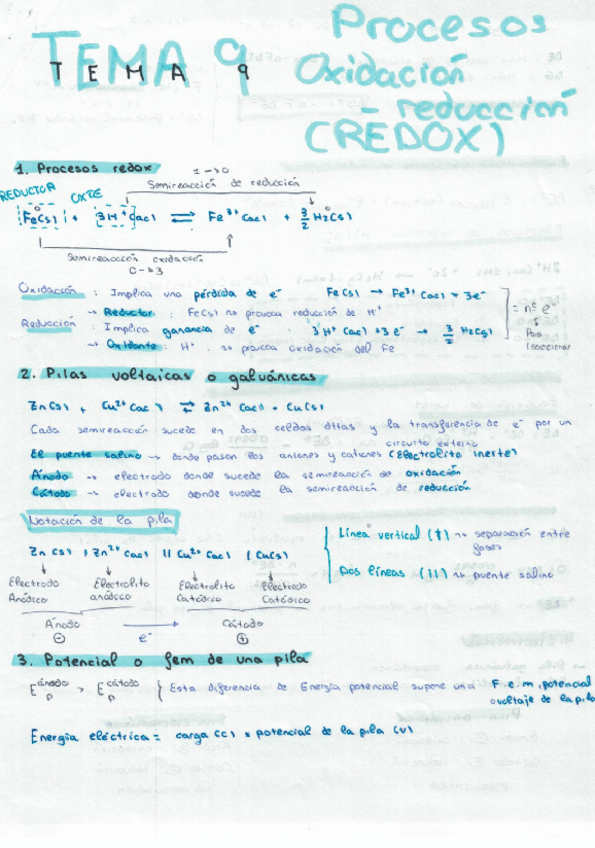 TEMA 9
T E M A 9
Procesos
Oxidación
- reducción
(REDOX)
1. Procesos redox
1 -> 0
Semireacción de reducción
REDUCTOR OXTE
Fe(s) + 3H+(ac) ⇌ Fe3+(ac) + 3/2 H2(s)
Semireacción oxidación
0 -> 3
Oxidación : Implica una pérdida de e- Fe(s) → Fe3+(ac) + 3e-
-> Reductor : Fe(s) provoca reducción de H+
= nº e-
Reducción : Implica ganancia de e- 3H+(ac) + 3e- → 3/2 H2(g)
-> Oxidante : H+ . provoca oxidación del Fe
2. Pilas voltaicas o galvánicas
Zn(s) + Cu2+(ac) ⇌ Zn2+(ac) + Cu(s)
Cada semireacción sucede en dos celdas dttas y la transferencia de e- por un
circuito externo
El puente salino -> donde pasan los aniones y cationes (Electrolito inerte)
Ánodo -> electrodo donde sucede la semireacción de oxidación
Cátodo -> electrodo donde sucede la semireacción de reducción
Notación de la pila
Zn(s) | Zn2+(ac) || Cu2+(ac) | Cu(s)
Línea vertical (|) separación entre
fases
Dos líneas (||) puente salino
Electrodo Electrolito Electrolito Electrodo
Anódico anódico Catódico Catódico
Ánodo Cátodo
- e- +
3. Potencial o fem de una pila
E ánodo p > E cátodo p { Esta diferencia de Energía potencial supone una F.e.m, potencial
o voltaje de la pila
Energía eléctrica = carga (C) x potencial de la pila (V)